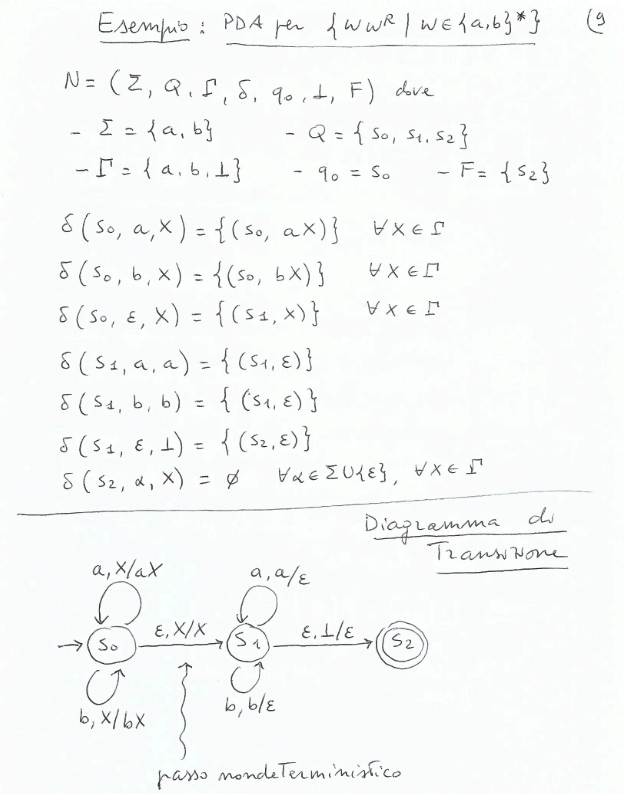 Esempio: PDA per {wwᴿ | w∈{a,b}*} (9
N = (Σ, Q, Γ, δ, q₀, ⊥, F) dove
- Σ = {a, b} - Q = {s₀, s₁, s₂}
- Γ = {a, b, ⊥} - q₀ = s₀ - F = {s₂}
δ(s₀, a, X) = {(s₀, aX)} ∀X∈Γ
δ(s₀, b, X) = {(s₀, bX)} ∀X∈Γ
δ(s₀, ε, X) = {(s₁, X)} ∀X∈Γ
δ(s₁, a, a) = {(s₁, ε)}
δ(s₁, b, b) = {(s₁, ε)}
δ(s₁, ε, ⊥) = {(s₂, ε)}
δ(s₂, α, X) = ∅ ∀α∈Σ∪{ε}, ∀X∈Γ
Diagramma di
Transizione
a, X/aX a, a/ε
s₀ ε, X/X s₁ ε, ⊥/ε s₂
b, X/bX b, b/ε
passo nondeterministico